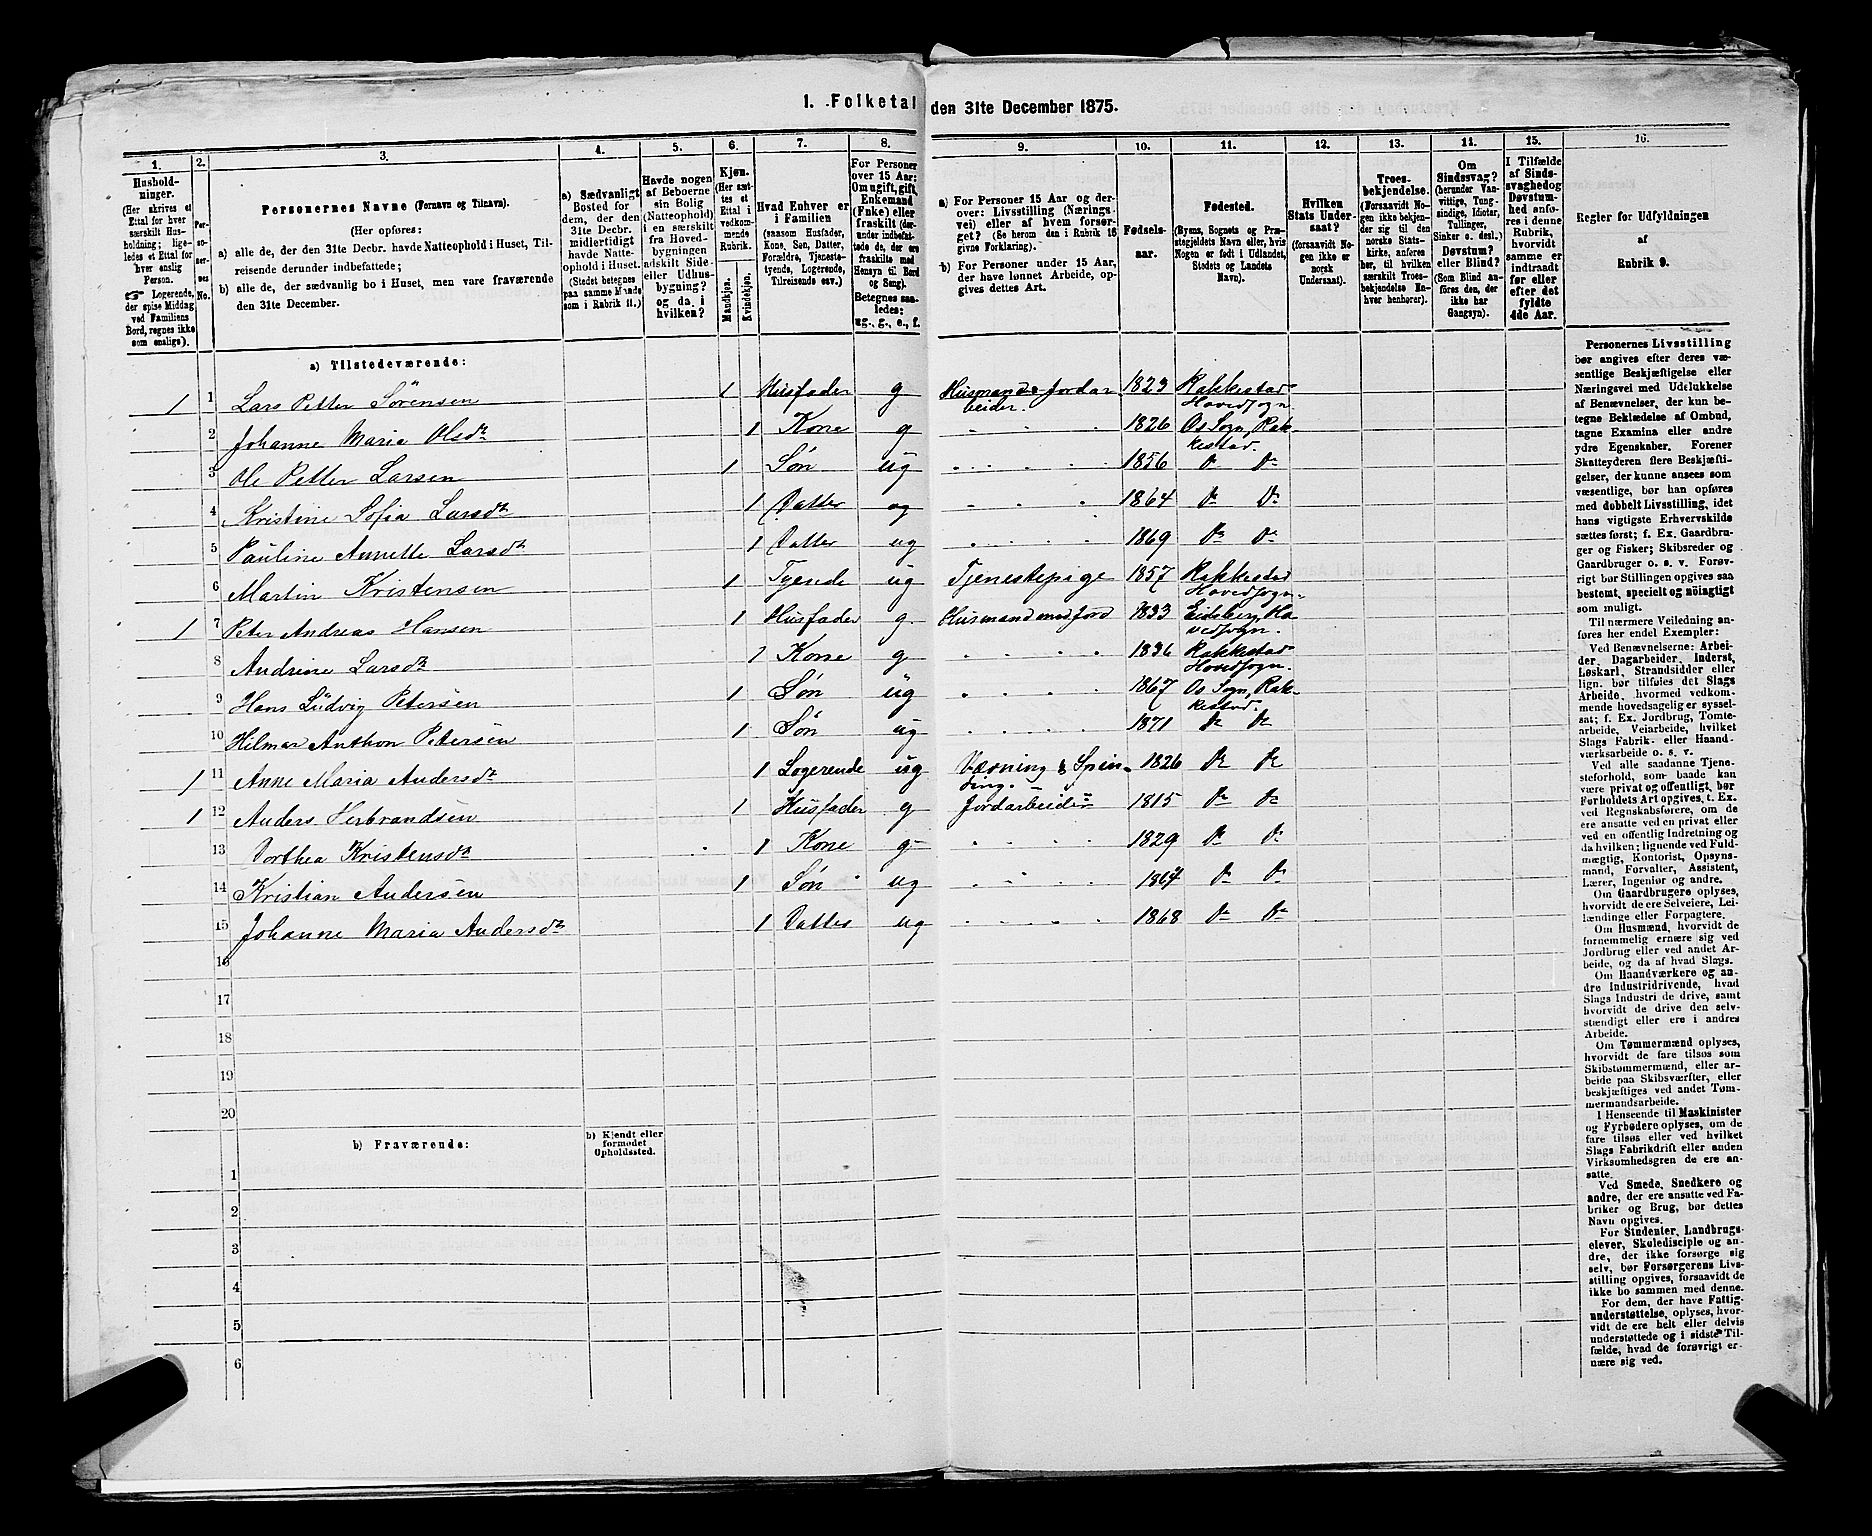 1. Folketal den 31te December 1875.
1. 2. 3. 4. 5. 6. 7. 8. 9. 10. 11. 12. 13. 14. 15. 16.
Hushold-
ninger.
(Her skrives et
Ettal for hver
særskilt Hus-
holdning; lige-
ledes et Ettal for
hver enslig
Person.
☞ Logerende,
der spise Middag
ved Familiens
Bord, regnes ikke
som enslige).
Per-
so-
ner-
nes
No.
Personernes Navne (Fornavn og Tilnavn).
(Her opføres:
a) alle de, der den 31te Decbr. havde Natteophold i Huset, Til-
reisende derunder indbefattede;
b) alle de, der sædvanlig bo i Huset, men vare fraværende
den 31te December.
a) Sædvanligt
Bosted for
dem, der den
31te Decbr.
midlertidigt
havde Natte-
ophold i Huset.
(Stedet betegnes
paa samme Maade
som i Rubrik 11.)
Havde nogen
af Beboerne
sin Bolig
(Natteophold)
i en særskilt
fra Hoved-
bygningen
adskilt Side-
eller Udhus-
bygning?
og da i
hvilken?
Kjøn.
(Her sæt-
tes et
Ettal i
vedkom-
mende
Rubrik.
Mandkjøn.
Kvindekjøn.
Hvad Enhver er
i Familien
(saasom Husfader,
Kone, Søn, Datter,
Forældre, Tjeneste-
tyende, Logerende,
Tilreisende osv.)
For Personer
over 15 Aar:
Om ugift, gift,
Enkemand
(Enke) eller
fraskilt (der-
under indbefat-
tede de, der ere
fraskilte med
Hensyn til Bord
og Seng).
Betegnes saa-
ledes:
ug., g., e., f.
a) For Personer 15 Aar og der-
over: Livsstilling (Nærings-
vei) eller af hvem forsør-
get? (Se herom den i Rubrik 16
givne Forklaring).
b) For Personer under 15 Aar,
der have lønnet Arbeide, op-
gives dettes Art.
Fødsels-
aar.
Fødested.
(Byens, Sognets og Præ-
stegjeldets Navn eller, hvis
Nogen er født i Udlandet,
Stedets og Landets
Navn).
Hvilken
Stats Under-
saat?
(forsaavidt No-
gen ikke er
norsk
Undersaat).
Troes-
bekjendelse.
(Forsaavidt No-
gen ikke bekjen-
der sig til den
norske Stats-
kirke, anføres
her, til hvilken
særskilt Troes-
bekjendelse En-
hver henhører).
Om
Sindssvag?
(herunder Van-
vittige, Tung-
sindige, Idioter,
Tullinger,
Sinker o. desl.)
Døvstum?
eller Blind?
(Som Blind an-
føres den, der
ikke har
Gangsyn).
I Tilfælde
af Sinds-
svaghed og
Døvstum-
hed anfø-
res i denne
Rubrik,
hvorvidt
samme er
indtraadt
før eller
efter det
fyldte
4de Aar.
Regler for Udfyldningen
af
Rubrik 9.
a) Tilstedeværende:
1 1 Lars Petter Sörensen 1 Husfader g Husmand & Jordar 1823 Rakkestad
beider. Hovedsogn.
2 Johanne Maria Olsdtr 1 Kone g 1826 Os Sogn, Rak-
kestad.
3 Ole Petter Larsen 1 Søn ug 1856 Do Do
4 Kristine Sofia Larsdtr 1 Datter ug 1864 Do Do
5 Pauline Annette Larsdtr 1 Datter ug 1869 Do Do
6 Martin Kristensen 1 Tyende ug Tjenestepige 1857 Rakkestad
Hovedsogn.
1 7 Peter Andreas Hansen 1 Husfader g. Husmand med jord 1833 Eidsberg, Ho-
vedsogn.
8 Andrine Larsdtr 1 Kone g 1836 Rakkestad
Hovedsogn.
9 Hans Lüdvig Petersen 1 Søn ug 1867 Os Sogn, Rak-
kestad.
10 Hilmar Anthon Petersen 1 Søn ug 1871 Do Do
1 11 Anne Maria Andersdtr 1 Logerende ug Vævning & Spin- 1826 Do Do
ding.
1 12 Anders Herbrandsen 1 Husfader g Jordarbeider 1815 Do Do
13 Dorthea Kristensdtr 1 Kone g 1829 Do Do
14 Kristian Andersen 1 Søn ug 1864 Do Do
15 Johanne Maria Andersdtr 1 Datter ug 1868 Do Do
16
17
18
19
20
b) Fraværende:
b) Kjendt eller
formodet
Opholdssted.
1
2
3
4
5
6
Personernes Livsstilling
bør angives efter deres væ-
sentlige Beskjæftigelse eller
Næringsvei med Udelukkelse
af Benævnelser, der kun be-
tegne Beklædelse af Ombud,
tagne Examina eller andre
ydre Egenskaber. Forener
Skatteyderen flere Beskjæfti-
gelser, der kunne ansees som
væsentlige, bør han opføres
med dobbelt Livsstilling, idet
hans vigtigste Erhvervskilde
sættes først; f. Ex. Gaardbru-
ger og Fisker; Skibsreder og
Gaardbruger o. s. v. Forøv-
rigt bør Stillingen opgives saa
bestemt, specielt og nöiagtigt
som muligt.
Til nærmere Veiledning an-
føres her endel Exempler:
Ved Benævnelserne: Arbei-
der, Dagarbeider, Inderst,
Løskarl, Strandsidder eller
lign. bør tilføies det Slags
Arbeide, hvormed vedkom-
mende hovedsagelig er syssel-
sat; f. Ex. Jordbrug, Tomte-
arbeide, Veiarbeide, hvilket
Slags Fabrik- eller Haand-
værksarbeide o. s. v.
Ved alle saadanne Tjene-
steforhold, som baade kan
være privat og offentligt, bør
Forholdets Art opgives, t. Ex.
ved Regnskabsførere, om de
ere ansatte ved en privat eller
ved en offentlig Indretning og
da hvilken; lignende ved Fuld-
mægtig, Kontorist, Opsyns-
mand, Forvalter, Assistent,
Lærer, Ingeniør og andre.
Om Gaardbrugere oplyses,
hvorvidt de ere Selveiere, Lei-
lændinge eller Forpagtere.
Om Husmænd, hvorvidt de
fornemmelig ernære sig ved
Jordbrug eller ved andet Ar-
beide, og da af hvad Slags.
Om Haandværkere og an-
dre Industridrivende, hvad
Slags Industri de drive, samt
hvorvidt de drive den selv-
stændigt eller ere i andres
Arbeide.
Om Tømmermænd oplyses,
hvorvidt de fare tilsøs som
Skibstømmermænd, eller ar-
beide paa Skibsværfter, eller
beskjæftiges ved andet Tøm-
mermandsarbeide.
I Henseende til Maskinister
og Fyrbødere oplyses, om de
fare tilsøs eller ved hvilket
Slags Fabrikdrift eller anden
Virksomhedsgren de ere an-
satte.
Ved Smede, Snedkere og
andre, der ere ansatte ved Fa-
briker og Brug, bør dettes
Navn opgives.
For Studenter, Landbrugs-
elever, Skoledisciple og an-
dre, der ikke forsørge sig
selv, bør Forsørgerens Livs-
stilling opgives, forsaavidt de
ikke bo sammen med denne.
For dem, der have Fattig-
understøttelse, oplyses, hvor-
vidt de ere helt eller delvis
understøttede og i sidste Til-
fælde, hvad de forøvrigt er-
nære sig ved.